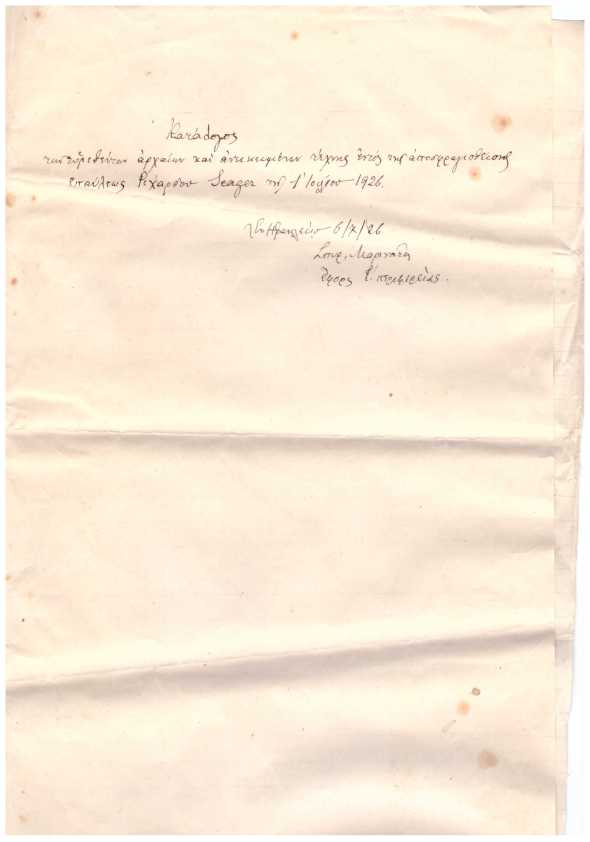 Κατάλογος
των εὑρεθέντων ἀρχαίων καὶ ἀντικειμένων τέχνης ἐντὸς τῆς ἀποσφραγισθείσης
ἐπαύλεως Ριχάρδου Seager τῇ 1ῃ Ἰουλίου 1926.
Ἐν Ἡρακλείῳ 6/7/26
Σπυρ. Μαρινάτος
Ἔφορος περιφερείας.